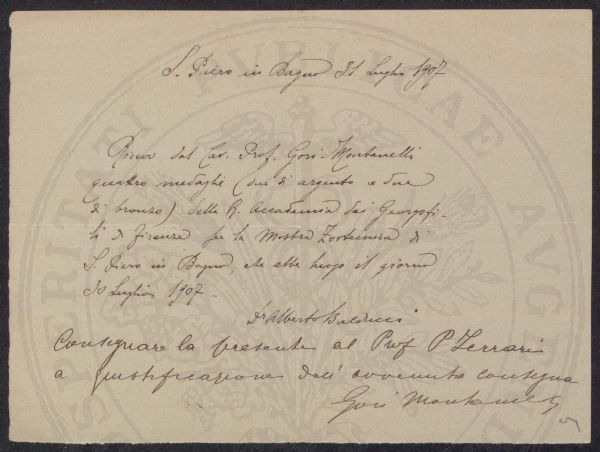 S. Piero in Bagno 31 Luglio 1907
Ricevo dal Cav. Prof. Gori-Montanelli
quattro medaglie (due di argento e due
di bronzo) della R. Accademia dei Georgofi-
li di Firenze per la Mostra Zootecnica di
S. Piero in Bagno, che ebbe luogo il giorno
30 Luglio 1907 -
Dr Alberto Balducci
Consegnare la presente al Prof P Ferrari
a giustificazione dell' avvenuta consegna
Gori Montanelli
PROSPERITATI PVBLICAE AVGE